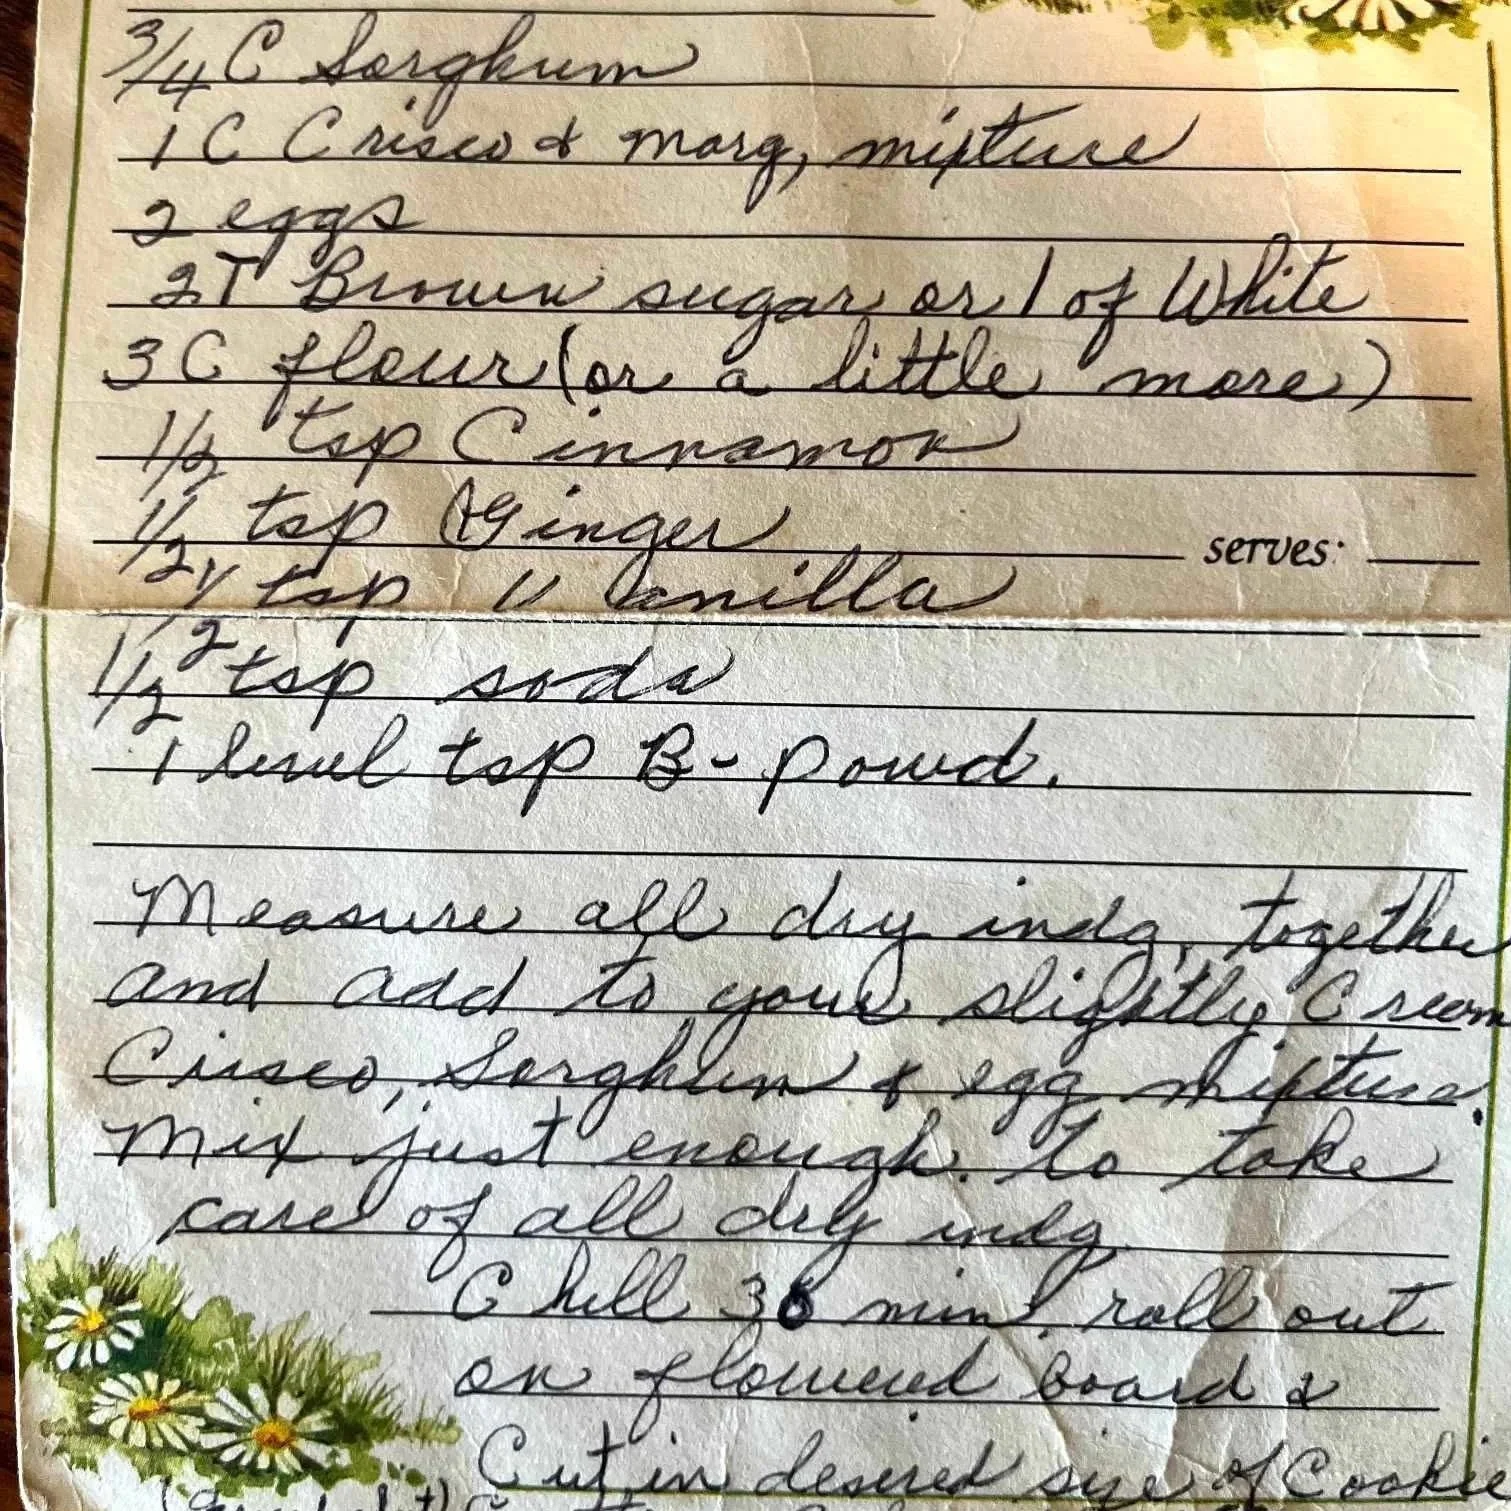 3/4 C Sorghum
1 C Crisco & marg, mixture
2 eggs
2T Brown sugar or 1 of White
3 C flour (or a little more)
1/2 tsp Cinnamon
1/2 tsp Ginger
serves:
1/2 tsp Vanilla
1/2 tsp soda
1 level tsp B-Powd.
Measure all dry indg, together
and add to your slightly Cream
Crisco, Sorghum & egg mixture.
Mix just enough to take
care of all dry indg
Chill 30 min, roll out
on floured board &
Cut in desered size of Cookie